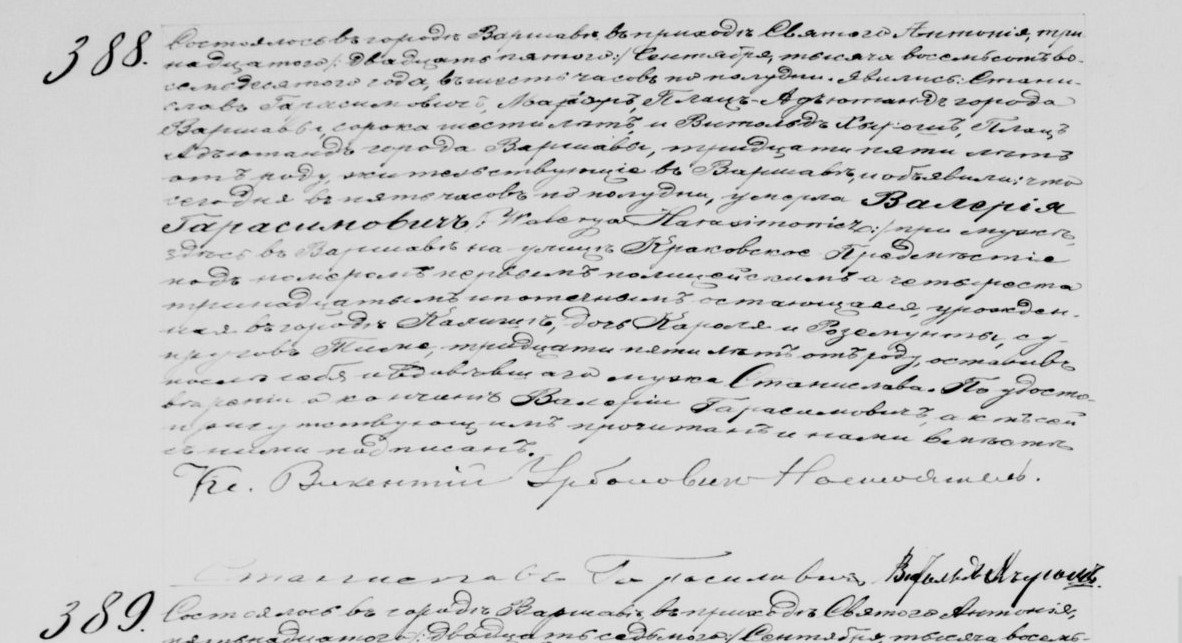 388.
Состоялось въ городѣ Варшавѣ, въ приходѣ Святого Антонія, три-
надцатого /: двадцать пятого :/ Сентября, тысяча восемьсотъ во-
семьдесятого года, въ шесть часовъ по полудни. Явились: Стани-
славъ Гарасимовичъ, Маіоръ, Плацъ-Адъютандъ города
Варшавы, сорока шести лѣтъ, и Витольдъ Плацъ
Адъютандъ города Варшавы, тридцати пяти лѣтъ
отъ роду, жительствующіе въ Варшавѣ, и объявили: что
сегодня въ пять часовъ по полудни, умерла Валерія
Гарасимовичъ /: Walerya Harasimowicz :/ при мужѣ,
здѣсь въ Варшавѣ на улицѣ Краковское Предмѣстіе
подъ номеромъ первымъ полицейскимъ а четыреста
тринадцатымъ ипотечнымъ остающаяся, урожден-
ная въ городѣ Калишѣ, дочь Кароля и Роземунды, су-
пруговъ Тильке, тридцати пяти лѣтъ отъ роду, оставивъ
послѣ себя овдовѣвшаго мужа Станислава. По удосто-
вѣреніи о кончинѣ Валеріи Гарасимовичъ, актъ сей
присутствующимъ прочитанъ и нами вмѣстѣ
съ ними подписанъ.
Кс. Викентій Урбановичъ Настоятель.
Станиславъ Гарасимовичъ, Витольдъ
389.
Состоялось въ городѣ Варшавѣ, въ приходѣ Святого Антонія,
пятьнадцатого /: двадцать седьмого :/ Сентября, тысяча восемь-